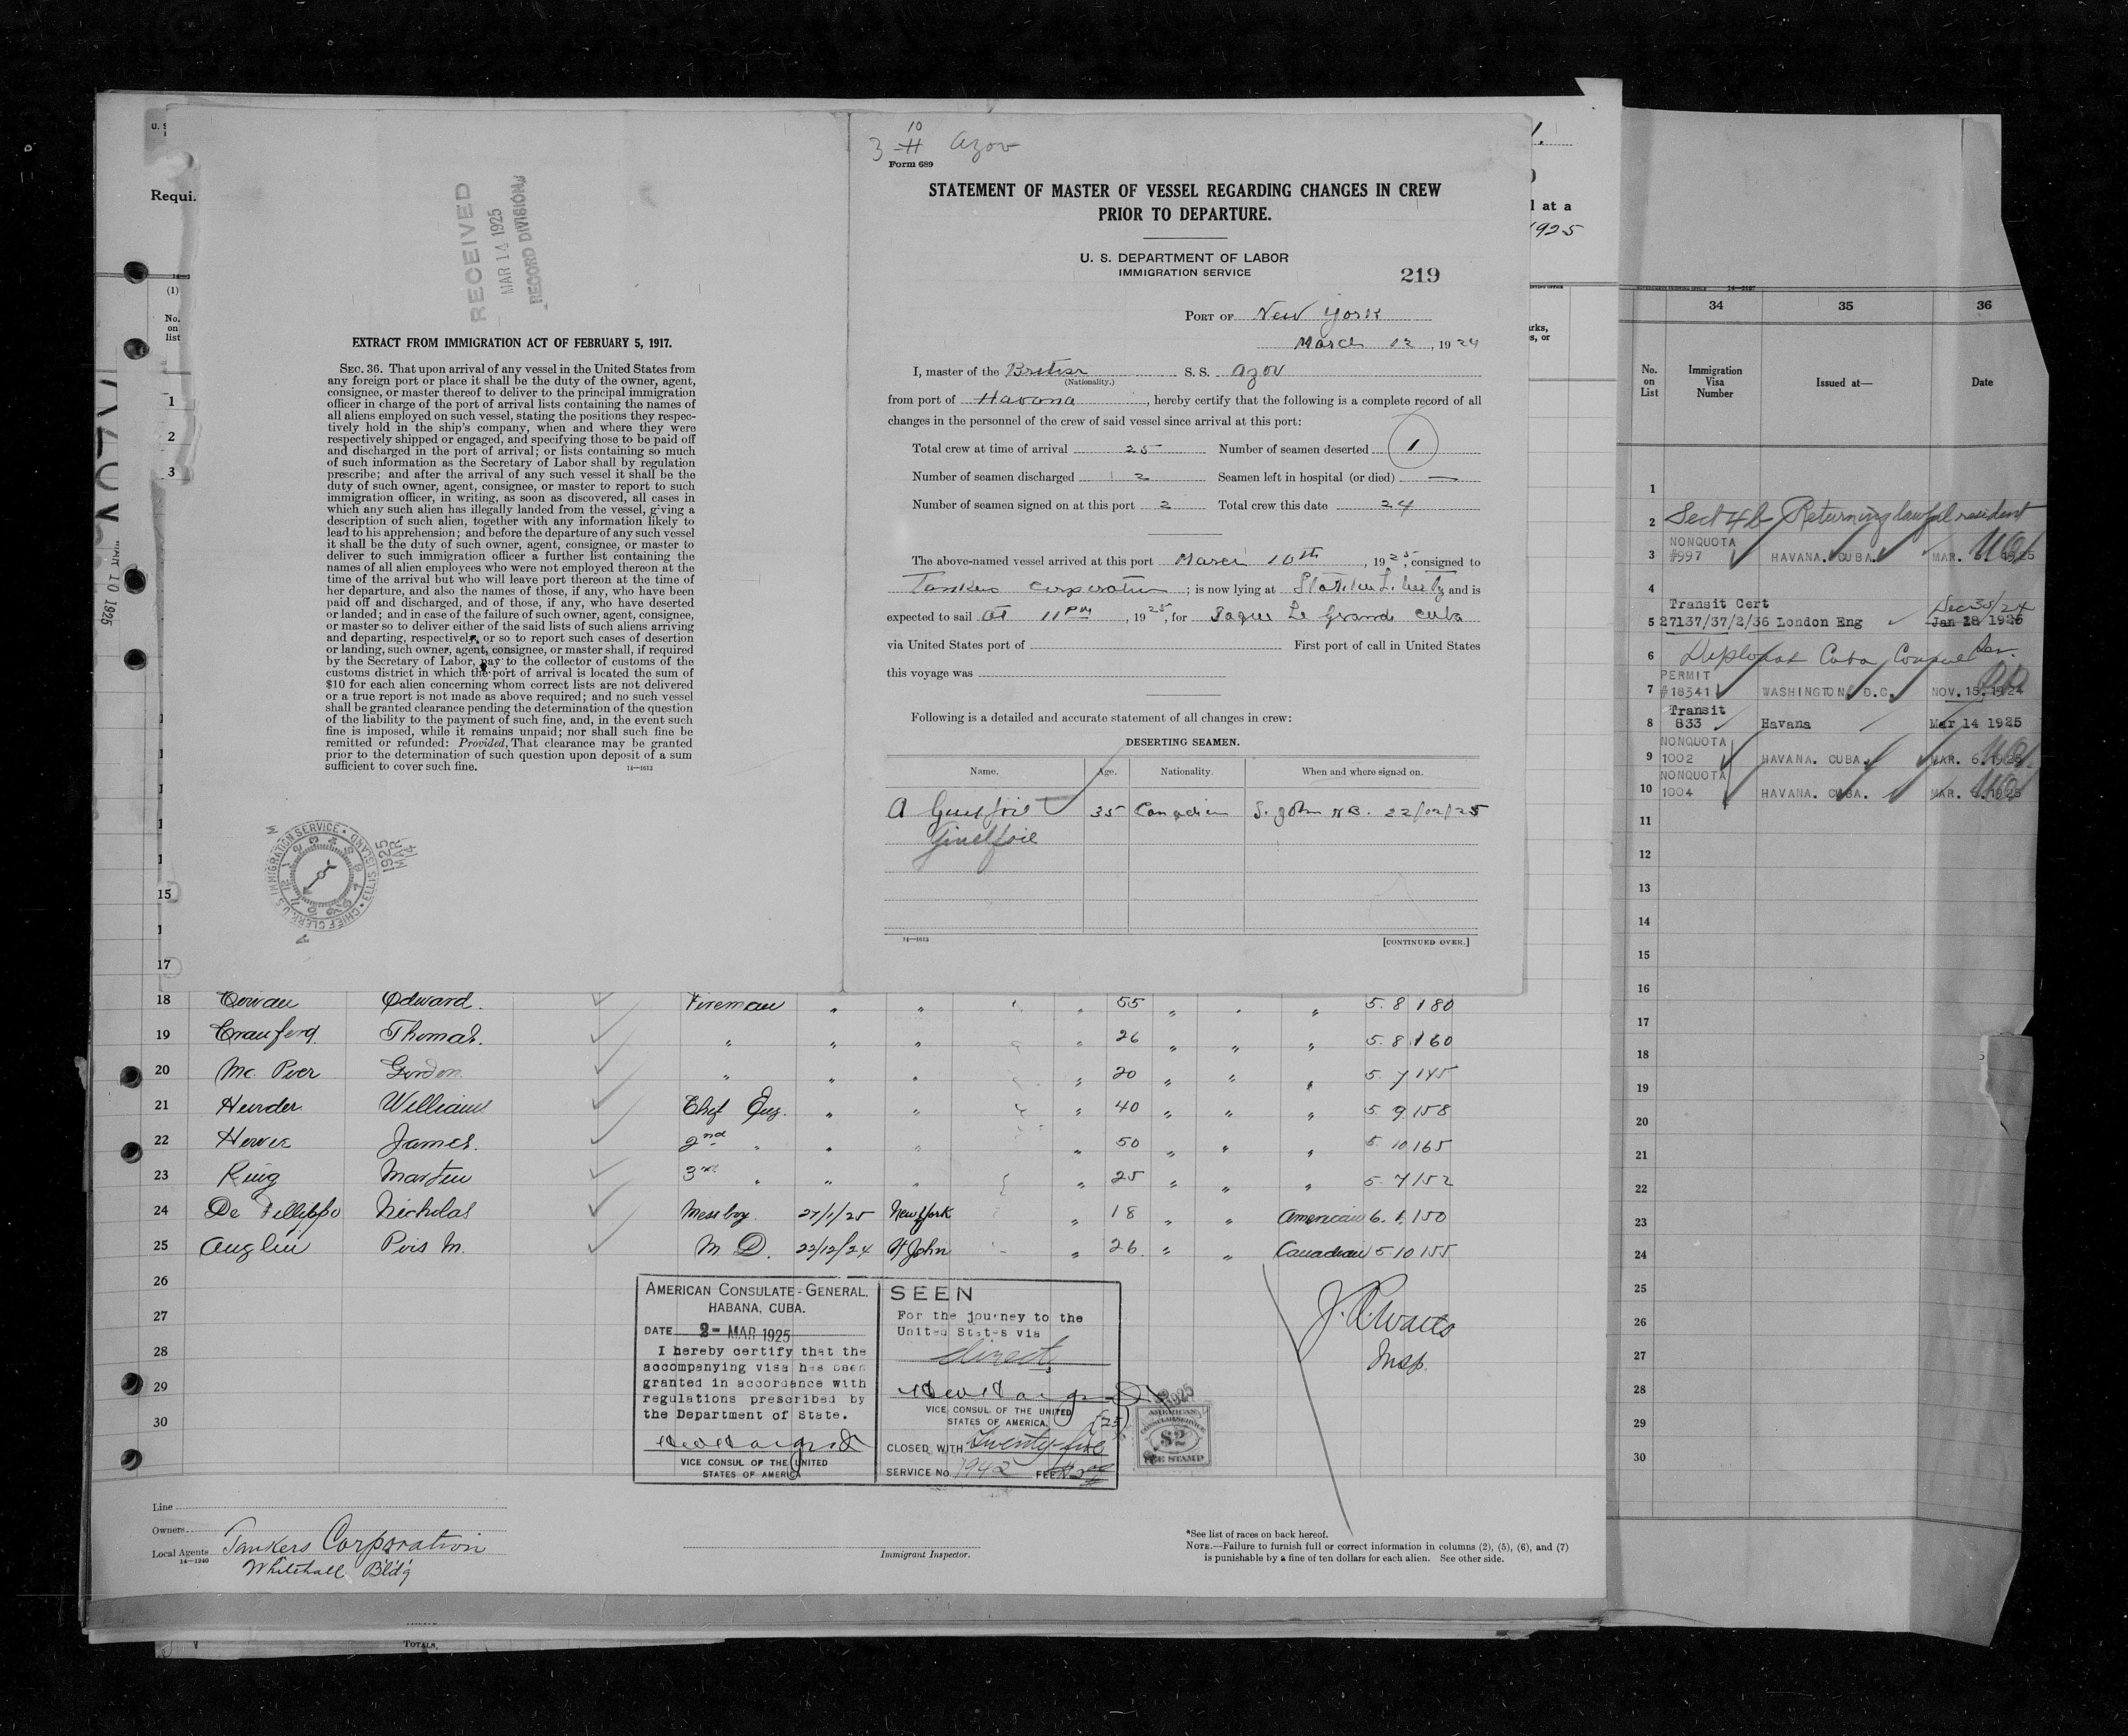 U. S
Requi.
(1)
No.
on
list
1
2
3
15
17
RECEIVED
MAR 14 1925
RECORD DIVISION
EXTRACT FROM IMMIGRATION ACT OF FEBRUARY 5, 1917.
SEC. 36. That upon arrival of any vessel in the United States from
any foreign port or place it shall be the duty of the owner, agent,
consignee, or master thereof to deliver to the principal immigration
officer in charge of the port of arrival lists containing the names of
all aliens employed on such vessel, stating the positions they respec-
tively hold in the ship's company, when and where they were
respectively shipped or engaged, and specifying those to be paid off
and discharged in the port of arrival; or lists containing so much
of such information as the Secretary of Labor shall by regulation
prescribe; and after the arrival of any such vessel it shall be the
duty of such owner, agent, consignee, or master to report to such
immigration officer, in writing, as soon as discovered, all cases in
which any such alien has illegally landed from the vessel, giving a
description of such alien, together with any information likely to
lead to his apprehension; and before the departure of any such vessel
it shall be the duty of such owner, agent, consignee, or master to
deliver to such immigration officer a further list containing the
names of all alien employees who were not employed thereon at the
time of the arrival but who will leave port thereon at the time of
her departure, and also the names of those, if any, who have been
paid off and discharged, and of those, if any, who have deserted
or landed; and in case of the failure of such owner, agent, consignee,
or master so to deliver either of the said lists of such aliens arriving
and departing, respectively, or so to report such cases of desertion
or landing, such owner, agent, consignee, or master shall, if required
by the Secretary of Labor, pay to the collector of customs of the
customs district in which the port of arrival is located the sum of
$10 for each alien concerning whom correct lists are not delivered
or a true report is not made as above required; and no such vessel
shall be granted clearance pending the determination of the question
of the liability to the payment of such fine, and, in the event such
fine is imposed, while it remains unpaid; nor shall such fine be
remitted or refunded: Provided, That clearance may be granted
prior to the determination of such question upon deposit of a sum
sufficient to cover such fine.
14—1613
U.S. IMMIGRATION SERVICE • ELLIS ISLAND • CHIEF CLERK
1925 MAR 14
MAR 10 1925
10
3 11 Azov
Form 689
STATEMENT OF MASTER OF VESSEL REGARDING CHANGES IN CREW
PRIOR TO DEPARTURE.
U. S. DEPARTMENT OF LABOR
IMMIGRATION SERVICE
219
PORT OF New York
March 12, 1924
I, master of the British S. S. Azov
(Nationality.)
from port of Havana, hereby certify that the following is a complete record of all
changes in the personnel of the crew of said vessel since arrival at this port:
Total crew at time of arrival 25 Number of seamen deserted 1
Number of seamen discharged 2 Seamen left in hospital (or died) —
Number of seamen signed on at this port 2 Total crew this date 24
The above-named vessel arrived at this port March 10th, 1925, consigned to
Tankers Corporation; is now lying at Statue Liberty and is
expected to sail at 11 PM, 1925, for Sagua Le Grande Cuba
via United States port of First port of call in United States
this voyage was
Following is a detailed and accurate statement of all changes in crew:
DESERTING SEAMEN.
Name. Age. Nationality. When and where signed on.
A Guilfoil 35 Canadian S. John N B. 22/02/25
14—1613
[CONTINUED OVER.]
l at a
1925
18 Cowan Edward. Fireman " " " 55 " " " 5. 8 180
19 Crawford Thomas. " " " " 26 " " " 5. 8 160
20 Mc. Peer Gordon " " " " 20 " " " 5. 7 145
21 Hunder William Chief Eng. " " " 40 " " " 5. 9 158
22 Howie James. 2nd " " " " 50 " " " 5. 10 165
23 King Martin 3rd " " " " 25 " " " 5. 7 152
24 De Fillippo Nicholas Mess boy 27/1/25 New York " 18 " " American 6. 1 150
25 Anglin M. M. D. 22/12/24 St John " 26 " " Canadian 5 10 155
26
27
28
29
30
AMERICAN CONSULATE-GENERAL,
HABANA, CUBA.
DATE 2- MAR 1925
I hereby certify that the
accompanying visa has been
granted in accordance with
regulations prescribed by
the Department of State.
VICE CONSUL OF THE UNITED
STATES OF AMERICA
SEEN
For the journey to the
United States via
direct
VICE CONSUL OF THE UNITED
STATES OF AMERICA.
(25)
CLOSED WITH Twenty-five
SERVICE NO. 1942 FEE
1925
AMERICAN
CONSULAR SERVICE
$2
FEE STAMP
Insp.
Line
Owners
Local Agents Tankers Corporation
14—1240
Whitehall Bld'g
Immigrant Inspector.
*See list of races on back hereof.
NOTE.—Failure to furnish full or correct information in columns (2), (5), (6), and (7)
is punishable by a fine of ten dollars for each alien. See other side.
TOTALS,
34 35 36
No.
on
List
Immigration
Visa
Number
Issued at—
Date
1
2 Sect 4b Returning lawful resident
3 NONQUOTA #997 HAVANA. CUBA. MAR. 5. 1925
4
5 Transit Cert 27137/37/2/36 London Eng Dec 30/24 Jan 28 1925
6 Diplomat Cuba Consul
7 PERMIT #18541 WASHINGTON, D.C. NOV. 15. 1924
8 Transit 833 Havana Mar 14 1925
9 NONQUOTA 1002 HAVANA. CUBA. MAR. 6. 1925
10 NONQUOTA 1004 HAVANA. CUBA. MAR. 6. 1925
11
12
13
14
15
16
17
18
19
20
21
22
23
24
25
26
27
28
29
30